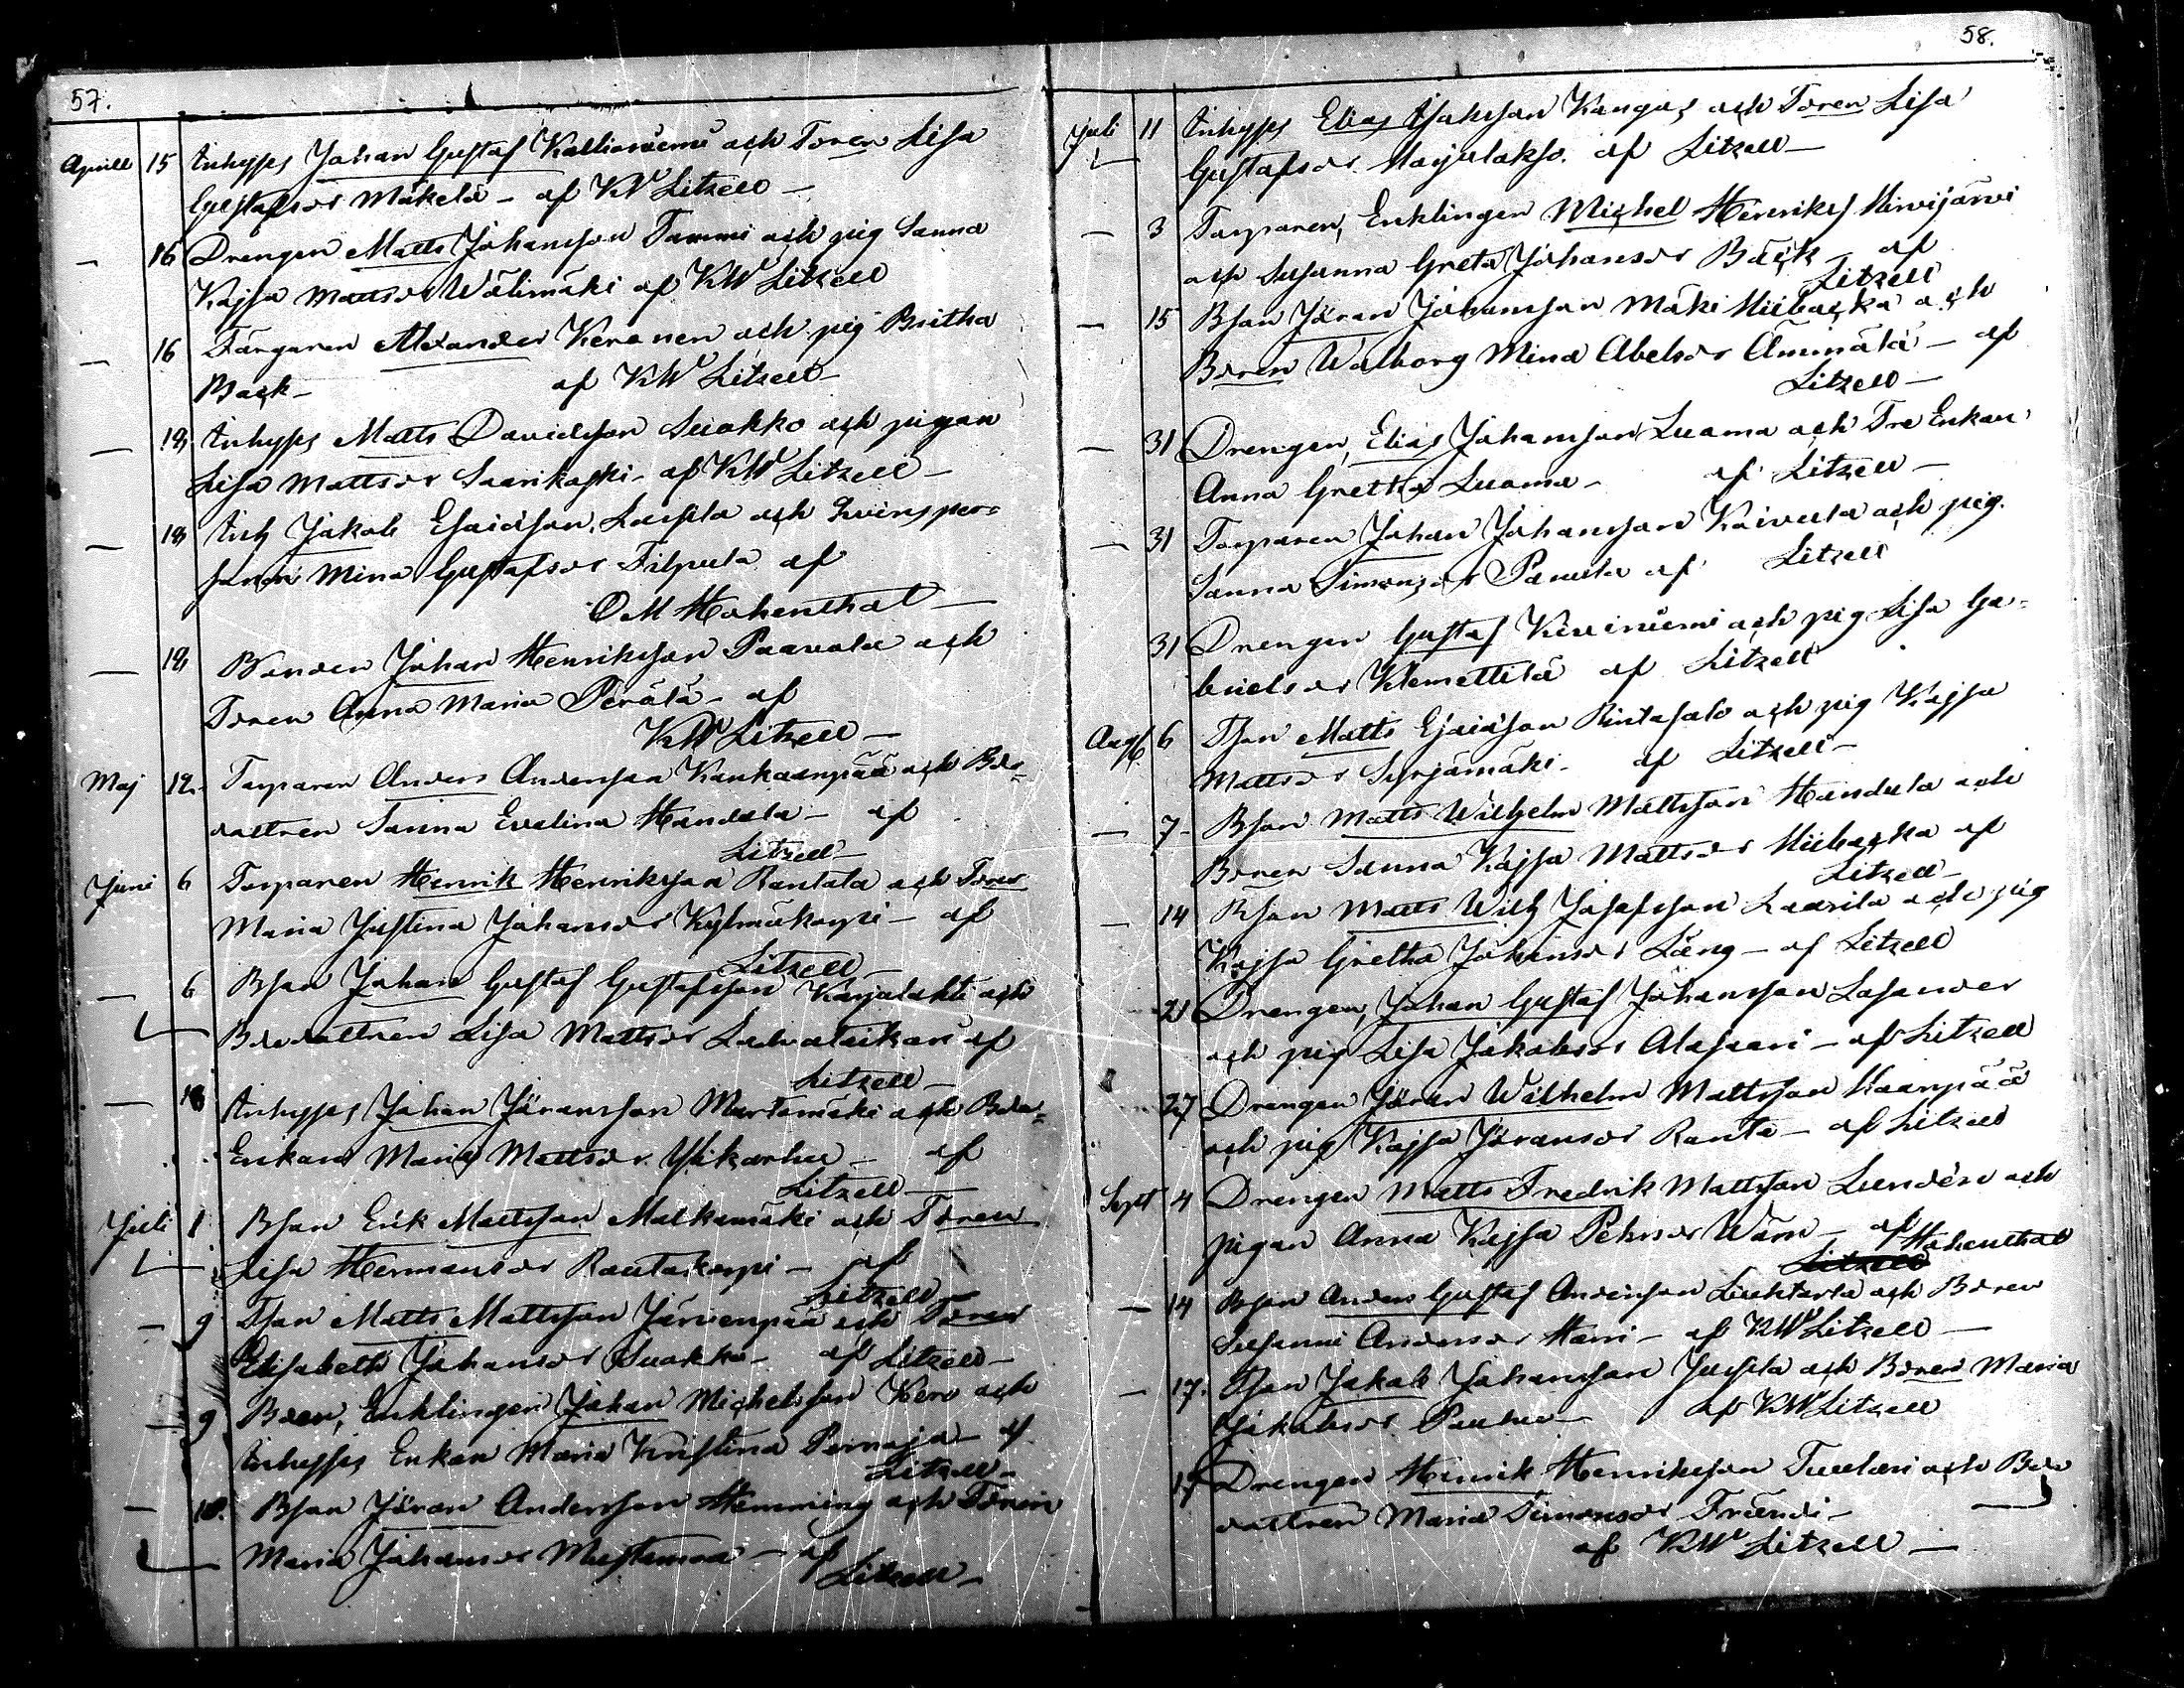 57.
Aprill 15 Inhyses Johan Gustaf Kallioniemi och Toren Lisa
Gustafsdr Mäkelä - af KW Litzell -
- 16 Drengen Matts Johansson Tammi och pig Sanna
Kajsa Mattsdr Wälimäki af KW Litzell
- 16 Färgaren Alexander Keranen och pig Britha
Back - af KW Litzell -
- 18 Inhyses Matts Davidsson Suokko och pigan
Lisa Mattsdr Saarikoski - af KW Litzell -
- 18 Inh Jakob Esaiasson Lassila och Qvinsper-
sonen Mina Gustafsdr Filpula af
O M Hohenthal -
- 18 Bonden Johan Henriksson Paavola och
Toren Anna Maria Perälä - af
KW Litzell -
Maj 12. Torparen Anders Andersson Kankaanpää och Bde-
dottren Sanna Evelina Handula - af
Litzell -
Juni 6 Torparen Henrik Henriksson Rantala och Toren
Maria Justina Johansdr Kylmäkorpi - af
Litzell -
- 6 Bson Johan Gustaf Gustafsson Karjalahti och
Bdedottren Lisa Mattsdr af
Litzell -
- 18 Inhyses Johan Jöransson Murtomäki och Bde-
Enkan Maria Mattsdr Ylikarhu - af
Litzell -
Juli 1 Bson Erik Mattsson Malkamäki och Toren
Lisa Hermansdr Rautakorpi - af
Litzell -
- 9 Tson Matts Mattsson Järvenpää och Toren
Elisabeth Johansdr Suokko - af Litzell -
- 9 Bden, Enklingen Johan Michelsson Kero och
Inhyses Enkan Maria Kristina Pernaja - af
Litzell -
- 10. Bson Jöran Andersson Hemming och Toren
Maria Johansdr Mustamaa - af
Litzell -
58.
Juli 11 Inhyses Elias Isaksson Kangas och Toren Lisa
Gustafsdr Karjalakso. af Litzell -
- 3 Torparen, Enklingen Michel Henriks Hirvijärvi
och Susanna Greta Johansdr Bäck - af
Litzell
- 15 Bson Jöran Johansson Mäki Hiibacka och
Bdren Walborg Mina Abelsdr Ämmälä - af
Litzell -
- 31 Drengen, Elias Johansson Luoma och Tre Enkan
Anna Gretha Luoma - af Litzell -
- 31 Torparen Johan Johansson Koivula och pig.
Sanna Simonsdr Panula af Litzell
31 Drengen Gustaf Kiviniemi och pig Lisa Ga-
brielsdr Klemettilä af Litzell
Aug 6 Tson Matts Esaiasson Rintasalo och pig Kajsa
Mattsdr Syrjämäki - af Litzell -
- 7 - Bson Matts Wilhelm Mattsson Handula och
Bdren Sanna Kajsa Mattsdr Hiibacka af
Litzell -
- 14 Bson Matts Wilh Josefsson Laurila och pig
Kajsa Gretha Johansdr Lång - af Litzell
- 21 Drengen, Johan Gustaf Johansson Lasander
och pig Lisa Jakobsdr Alasaari - af Litzell
27 Drengen Jöran Wilhelm Mattsson Haanpää
och pig Kajsa Jöransdr Ranta - af Litzell
Sept 4 Drengen Matts Fredrik Mattsson Lundén och
pigan Anna Kajsa Pehrsdr Wärn - af Hohenthal
Litzell
- 14 Bson Anders Gustaf Andersson Luhtala och Bdren
Susanna Andersdr Harri - af KW Litzell -
- 17. Tson Jakob Johansson Jussila och Bdren Maria
Jakobsdr Pouhu - af KW Litzell
17 Drengen Henrik Henriksson Tuulari och Bde
dottren Maria Simonsdr Frändi -
af KW Litzell -